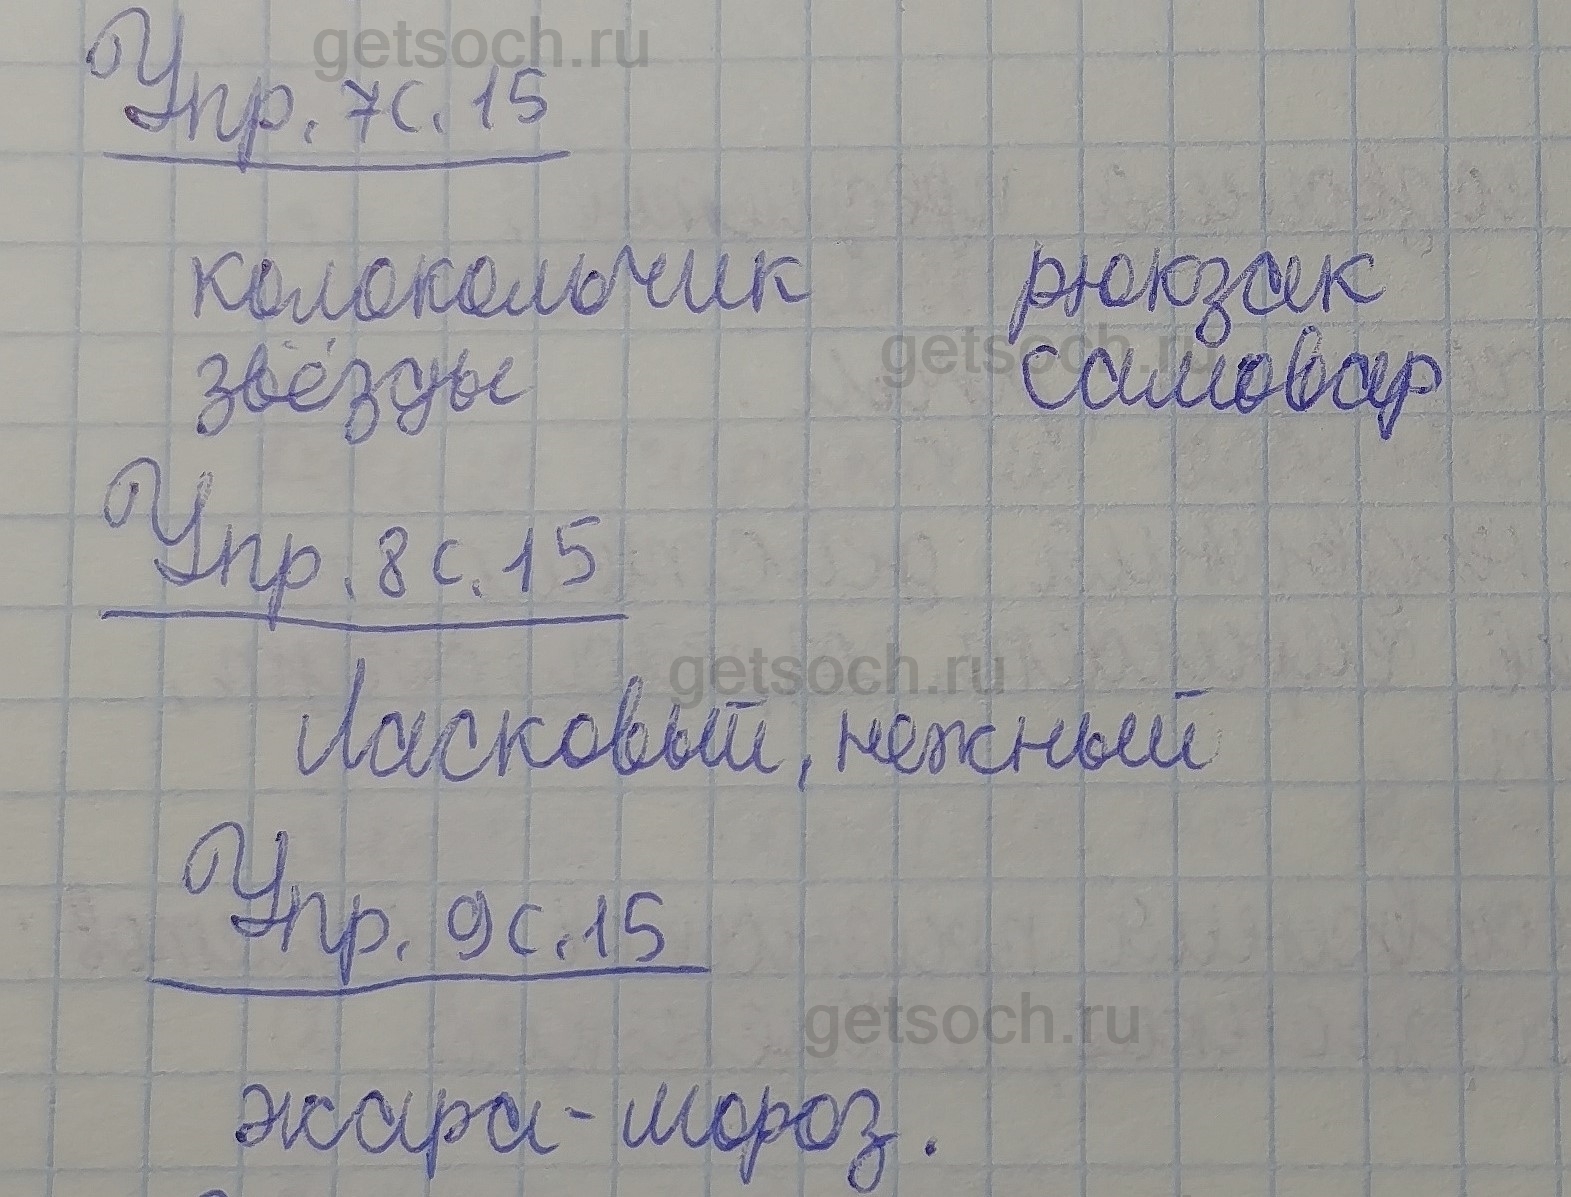 getsoch.ru
Упр. 7 с. 15
колокольчик рюкзак
getsoch.ru
звёзды самовар
Упр. 8 с. 15
getsoch.ru
Ласковый, нежный
Упр. 9 с. 15
getsoch.ru
жара - мороз.